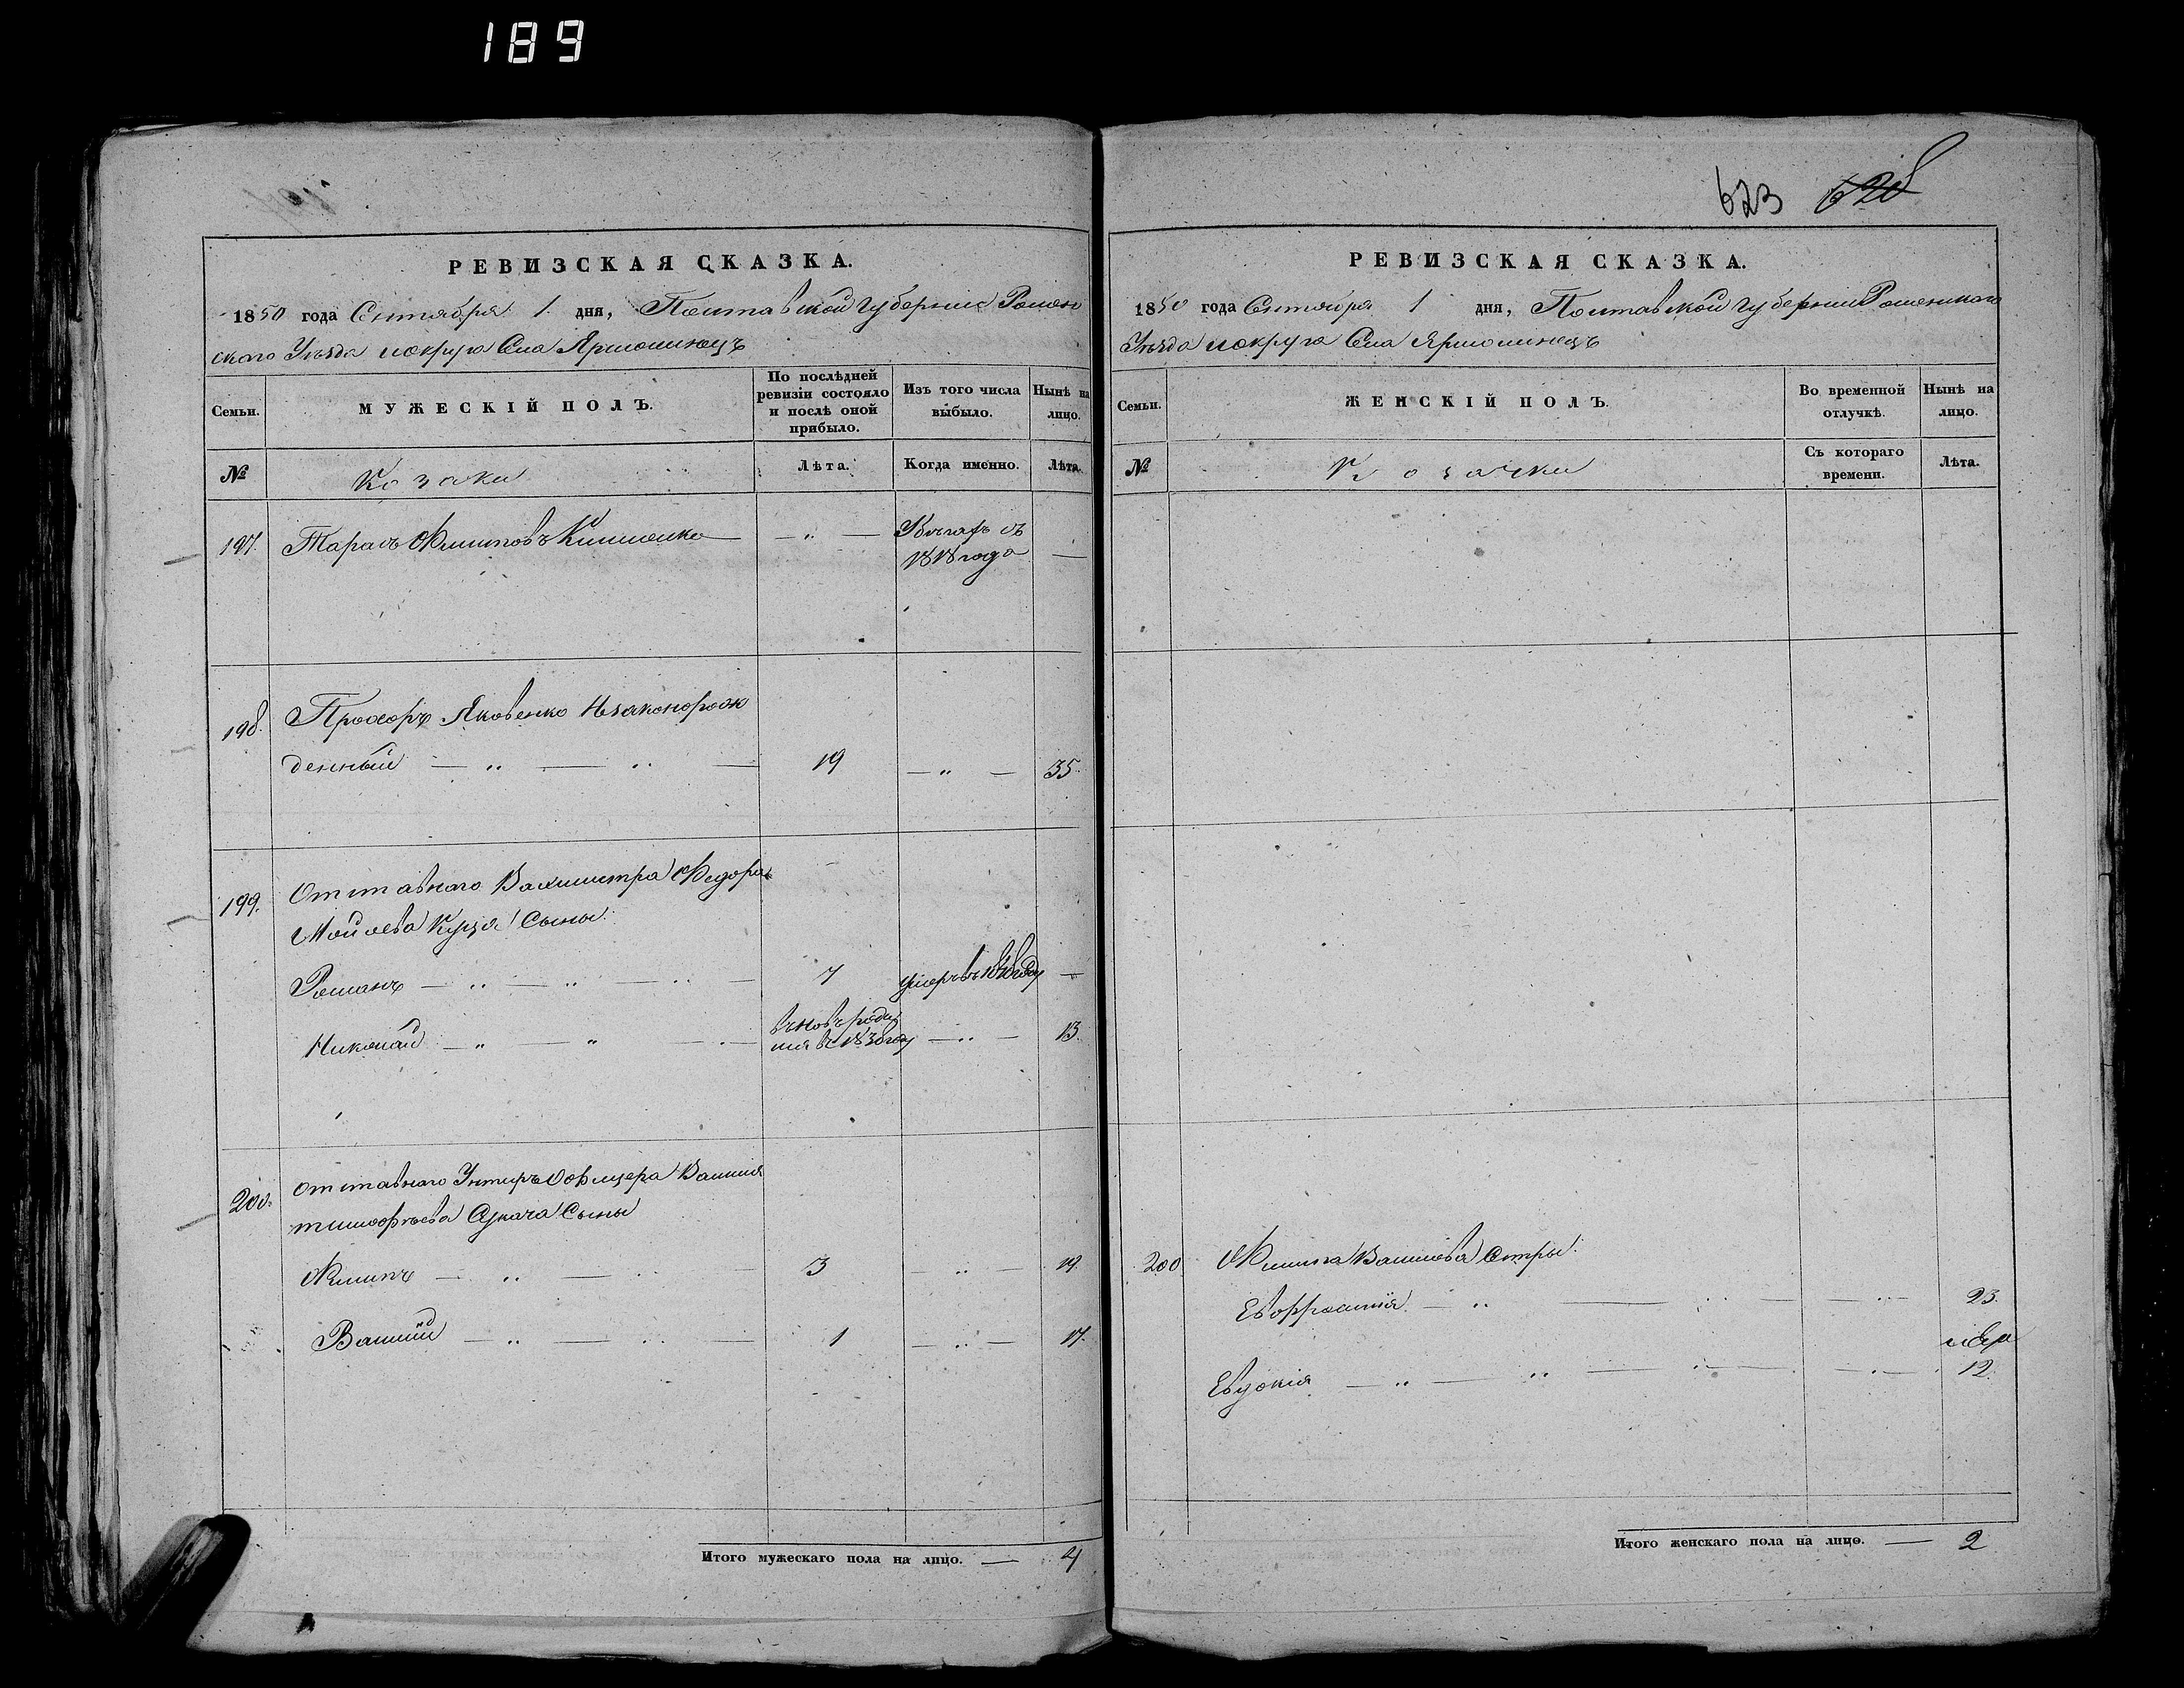 189
РЕВИЗСКАЯ СКАЗКА.
1850 года Сентября 1. дня, Полтавской губернии Ромен
ского Уезда и округа Села Ярмолинец
Семьи.
МУЖЕСКІЙ ПОЛЪ.
По послѣдней
ревизіи состояло
и послѣ оной
прибыло.
Изъ того числа
выбыло.
Нынѣ на
лицо.
№
Козаки
Лѣта.
Когда именно.
Лѣта.
197. Тарасъ Филиповъ — „ — въ бегахъ съ —
1818 года
198. Прохоръ Яковенко Незаконорож
денный — „ — „ — 19 — „ — 35.
199. Отставнаго Вахмистра Федора
Мойсева Сыны:
Романъ — „ — „ — „ — 7 умеръ въ году —
Николай — „ — „ — вновь роди
лся въ 1838 году — „ — 13.
200. Отставнаго Унтеръ Офицера Василия
тимофѣева Сыны
Филипъ — „ — „ — 3 — „ — 19.
Василій — „ — „ — 1 — „ — 17.
Итого мужескаго пола на лицо. — 4
623 628
РЕВИЗСКАЯ СКАЗКА.
1850 года Сентября 1 дня, Полтавской губернии Роменского
Уезда и округа Села Ярмолинецъ
Семьи.
ЖЕНСКІЙ ПОЛЪ.
Во временной
отлучкѣ.
Нынѣ на
лицо.
№
Козачки
Съ котораго
времени.
Лѣта.
200 Филипа Васильева Сестры:
Евфросинія — „ — „ — „ — 23.
Евдокія — „ — „ — „ — „ — 12.
Итого женскаго пола на лицо. — 2